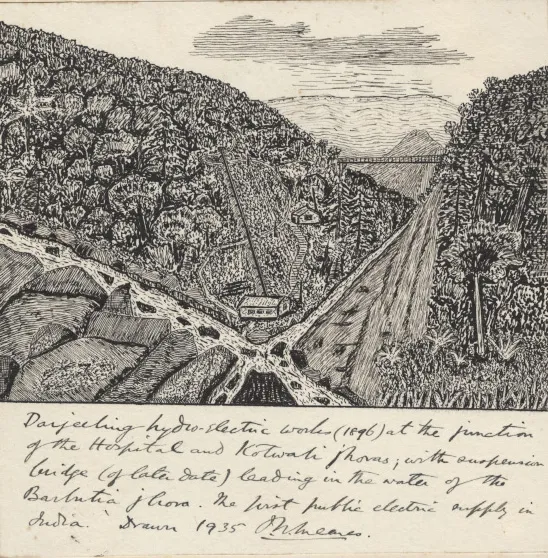 Darjeeling hydro-electric works (1896) at the junction
of the Hospital and Kotwali Jhoras; with suspension
bridge (of later date) leading in the water of the
Barbutia Jhora. The first public electric supply in
India. Drawn 1935